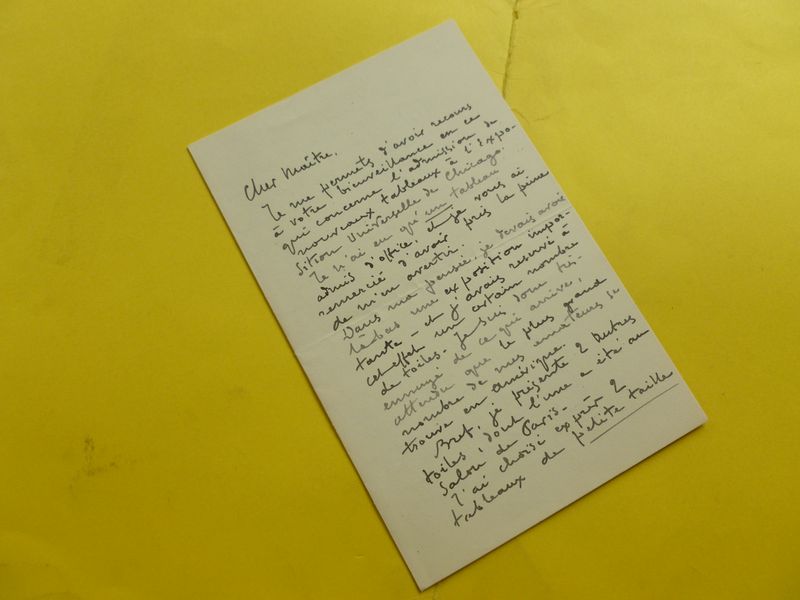 Cher Maître,
Je me permets d'avoir recours
à votre bienveillance en ce
qui concerne l'admission de
nouveaux tableaux à l'Expo-
sition Universelle de Chicago.
Je n'ai eu qu'un tableau
admis d'office, et je vous ai
remercié d'avoir pris la peine
de m'en avertir.
Dans ma pensée, je devais avoir
là-bas une exposition impor-
tante - et j'avais reservé à
cet effet un certain nombre
de toiles. Je suis donc très
ennuyé de ce qui arrive,
attendu que le plus grand
nombre de mes amateurs se
trouve en amérique.
Bref, je présente 2 autres
toiles, dont l'une a été au
Salon de Paris -
J'ai choisi exprès 2
tableaux de petite taille